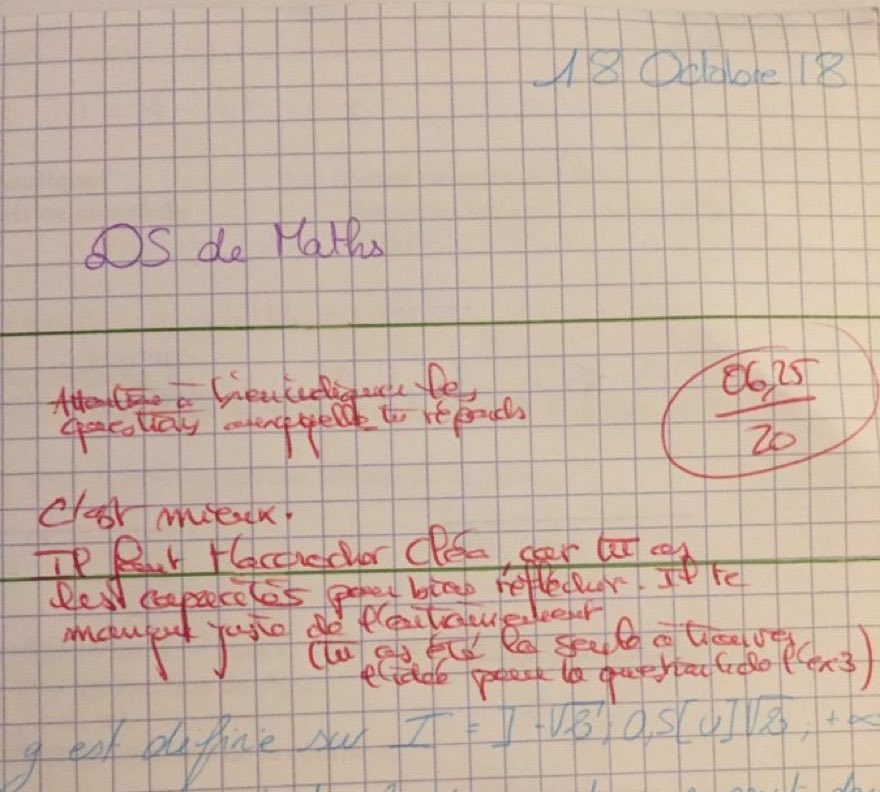 18 Octobre 18
DS de Maths
Attention à bien indiquer les
questions auxquelles tu réponds
06,25
20
C'est mieux.
Il faut t'accrocher Cléa, car tu as
des capacités pour bien réfléchir. Il te
manque juste de l'entraînement
(tu as été la seule à trouver
l'idée pour la question de l'ex3)
g est définie sur I = ]-√3; 0,5[U]√3; +∞